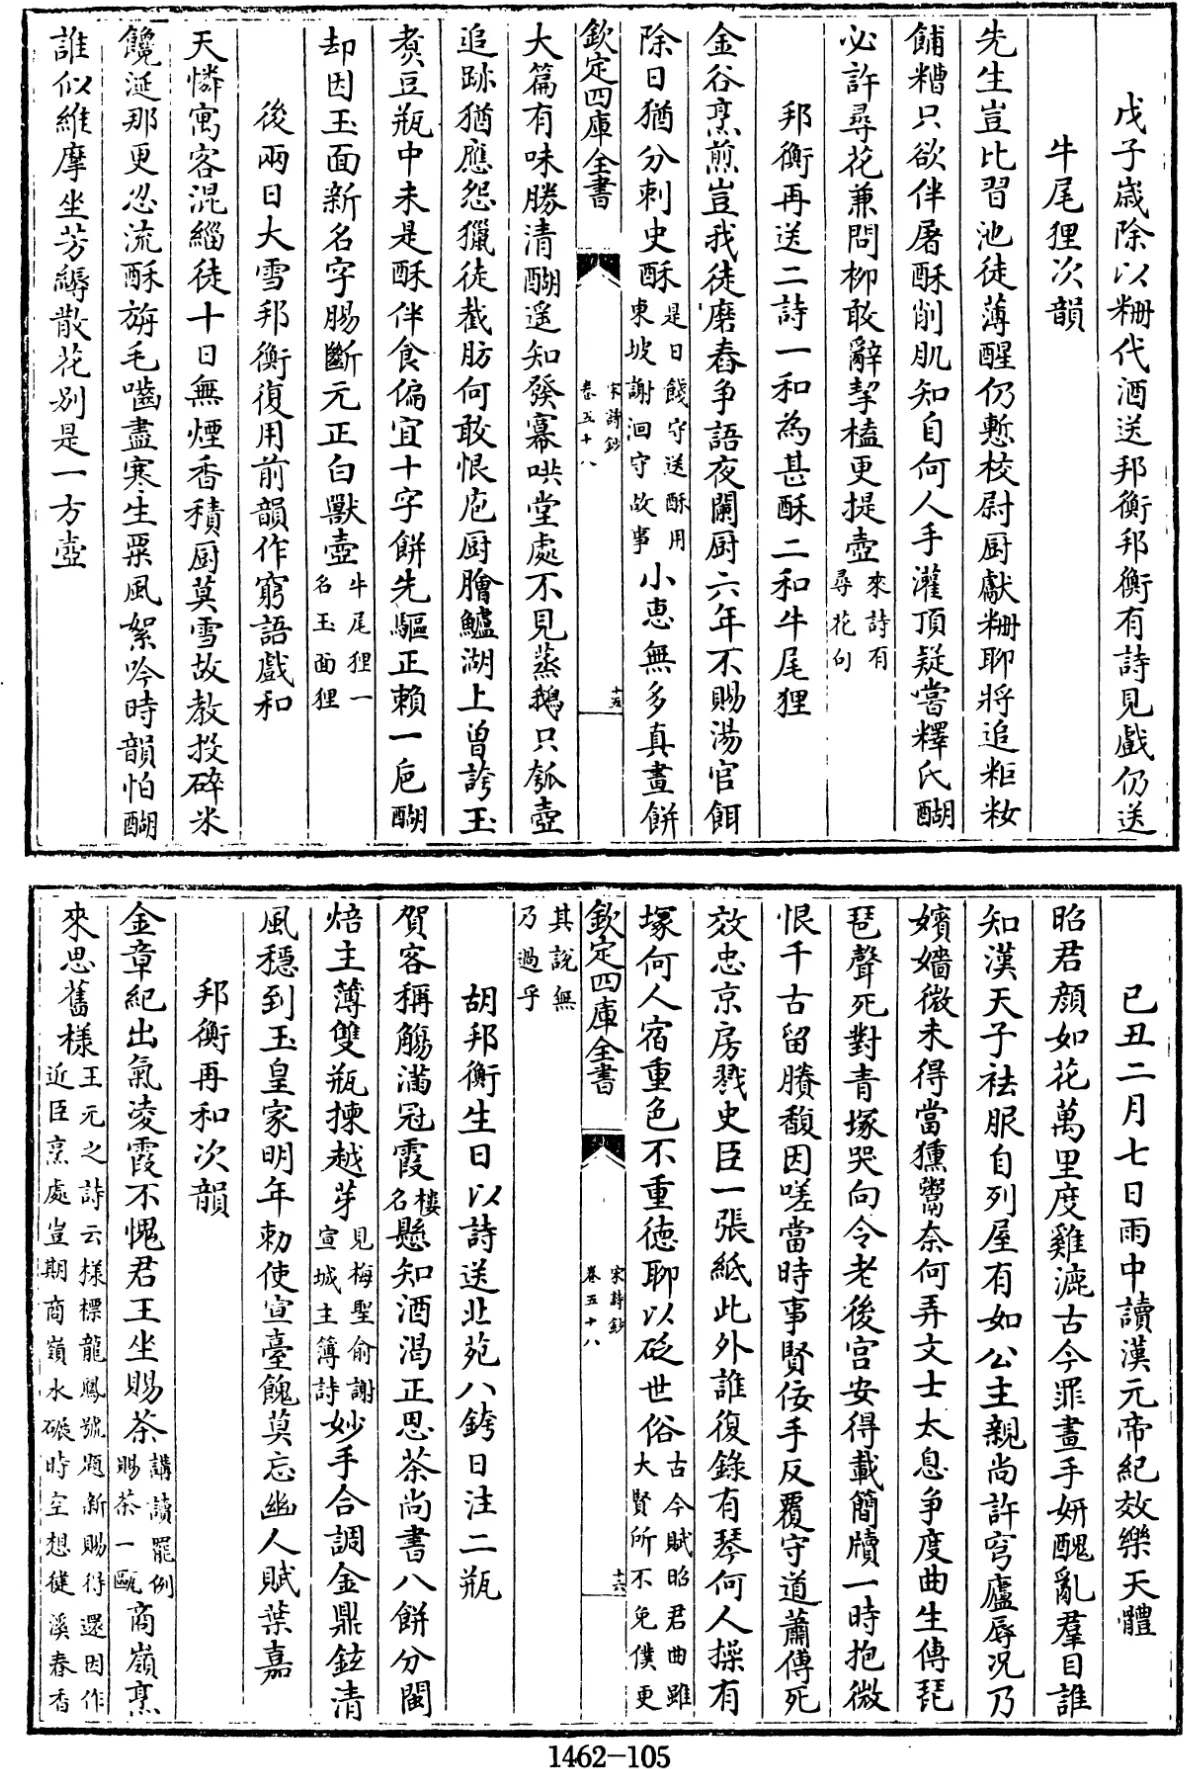 戊子嵗除以粣代酒送邦衡邦衡有詩見戲仍送
牛尾狸次韻
先生豈比習池徒薄醒仍慙校尉厨獻粣聊將追粔籹
餔糟只欲伴屠酥削肌知自何人手灌頂疑嘗釋氏醐
必許尋花兼問栁敢辭挈榼更提壺來詩有尋花句
邦衡再送二詩一和為甚酥二和牛尾狸
金谷烹煎豈我徒磨舂争語夜闌厨六年不賜湯官餌
除日猶分刺史酥是日餞守送酥用東坡謝泗守故事小惠無多真畫餅
欽定四庫全書
宋詩鈔
卷五十八
十五
大篇有味勝清醐遥知發冪哄堂處不見蒸鵝只瓠壺
追跡猶應怨獵徒截肪何敢恨庖厨膾鱸湖上曾誇玉
煑豆瓶中未是酥伴食偏宜十字餅先驅正賴一巵醐
却因玉面新名字腸斷元正白獸壺牛尾狸一名玉面狸
後兩日大雪邦衡復用前韻作窮語戲和
天憐寓客混緇徒十日無煙香積厨莫雪故教投碎米
饞涎那更忍流酥旃毛嚙盡寒生粟風絮吟時韻怕醐
誰似維摩坐芳縟散花别是一方壺
己丑二月七日雨中讀漢元帝紀效樂天體
昭君顔如花萬里度雞漉古今罪畫手妍醜亂羣目誰
知漢天子袪服自列屋有如公主親尚許穹廬辱况乃
嬪嬙微未得當獯鬻奈何弄文士太息争度曲生傳琵
琶聲死對青塚哭向令老後宫安得載簡牘一時抱微
恨千古留賸馥因嗟當時事賢佞手反覆守道蕭傅死
效忠京房戮史臣一張紙此外誰復錄有琴何人操有
塚何人宿重色不重徳聊以砭世俗古今賦昭君曲雖大賢所不免僕更
欽定四庫全書
宋詩鈔
卷五十八
十六
其說無乃過乎
胡邦衡生日以詩送北苑八銙日注二瓶
賀客稱觴滿冠霞樓名懸知酒渴正思茶尚書八餅分閩
焙主薄雙瓶揀越芽見梅聖俞謝宣城主簿詩妙手合調金鼎鉉清
風穩到玉皇家明年勅使宣臺餽莫忘幽人賦葉嘉
邦衡再和次韻
金章紀出氣凌霞不愧君王坐賜茶講讀罷例賜茶一甌商嶺烹
來思舊樣王元之詩云様標龍鳳號題新賜得還因作近臣烹處豈期商嶺水碾時空想徤溪春香
1462-105